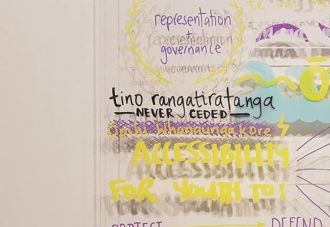 representation
+
governance
tino rangatiratanga
— NEVER CEDED —
whanaungakore
ACCESSIBILITY
FOR YOUTH TO!
PROTECT → DEFEND